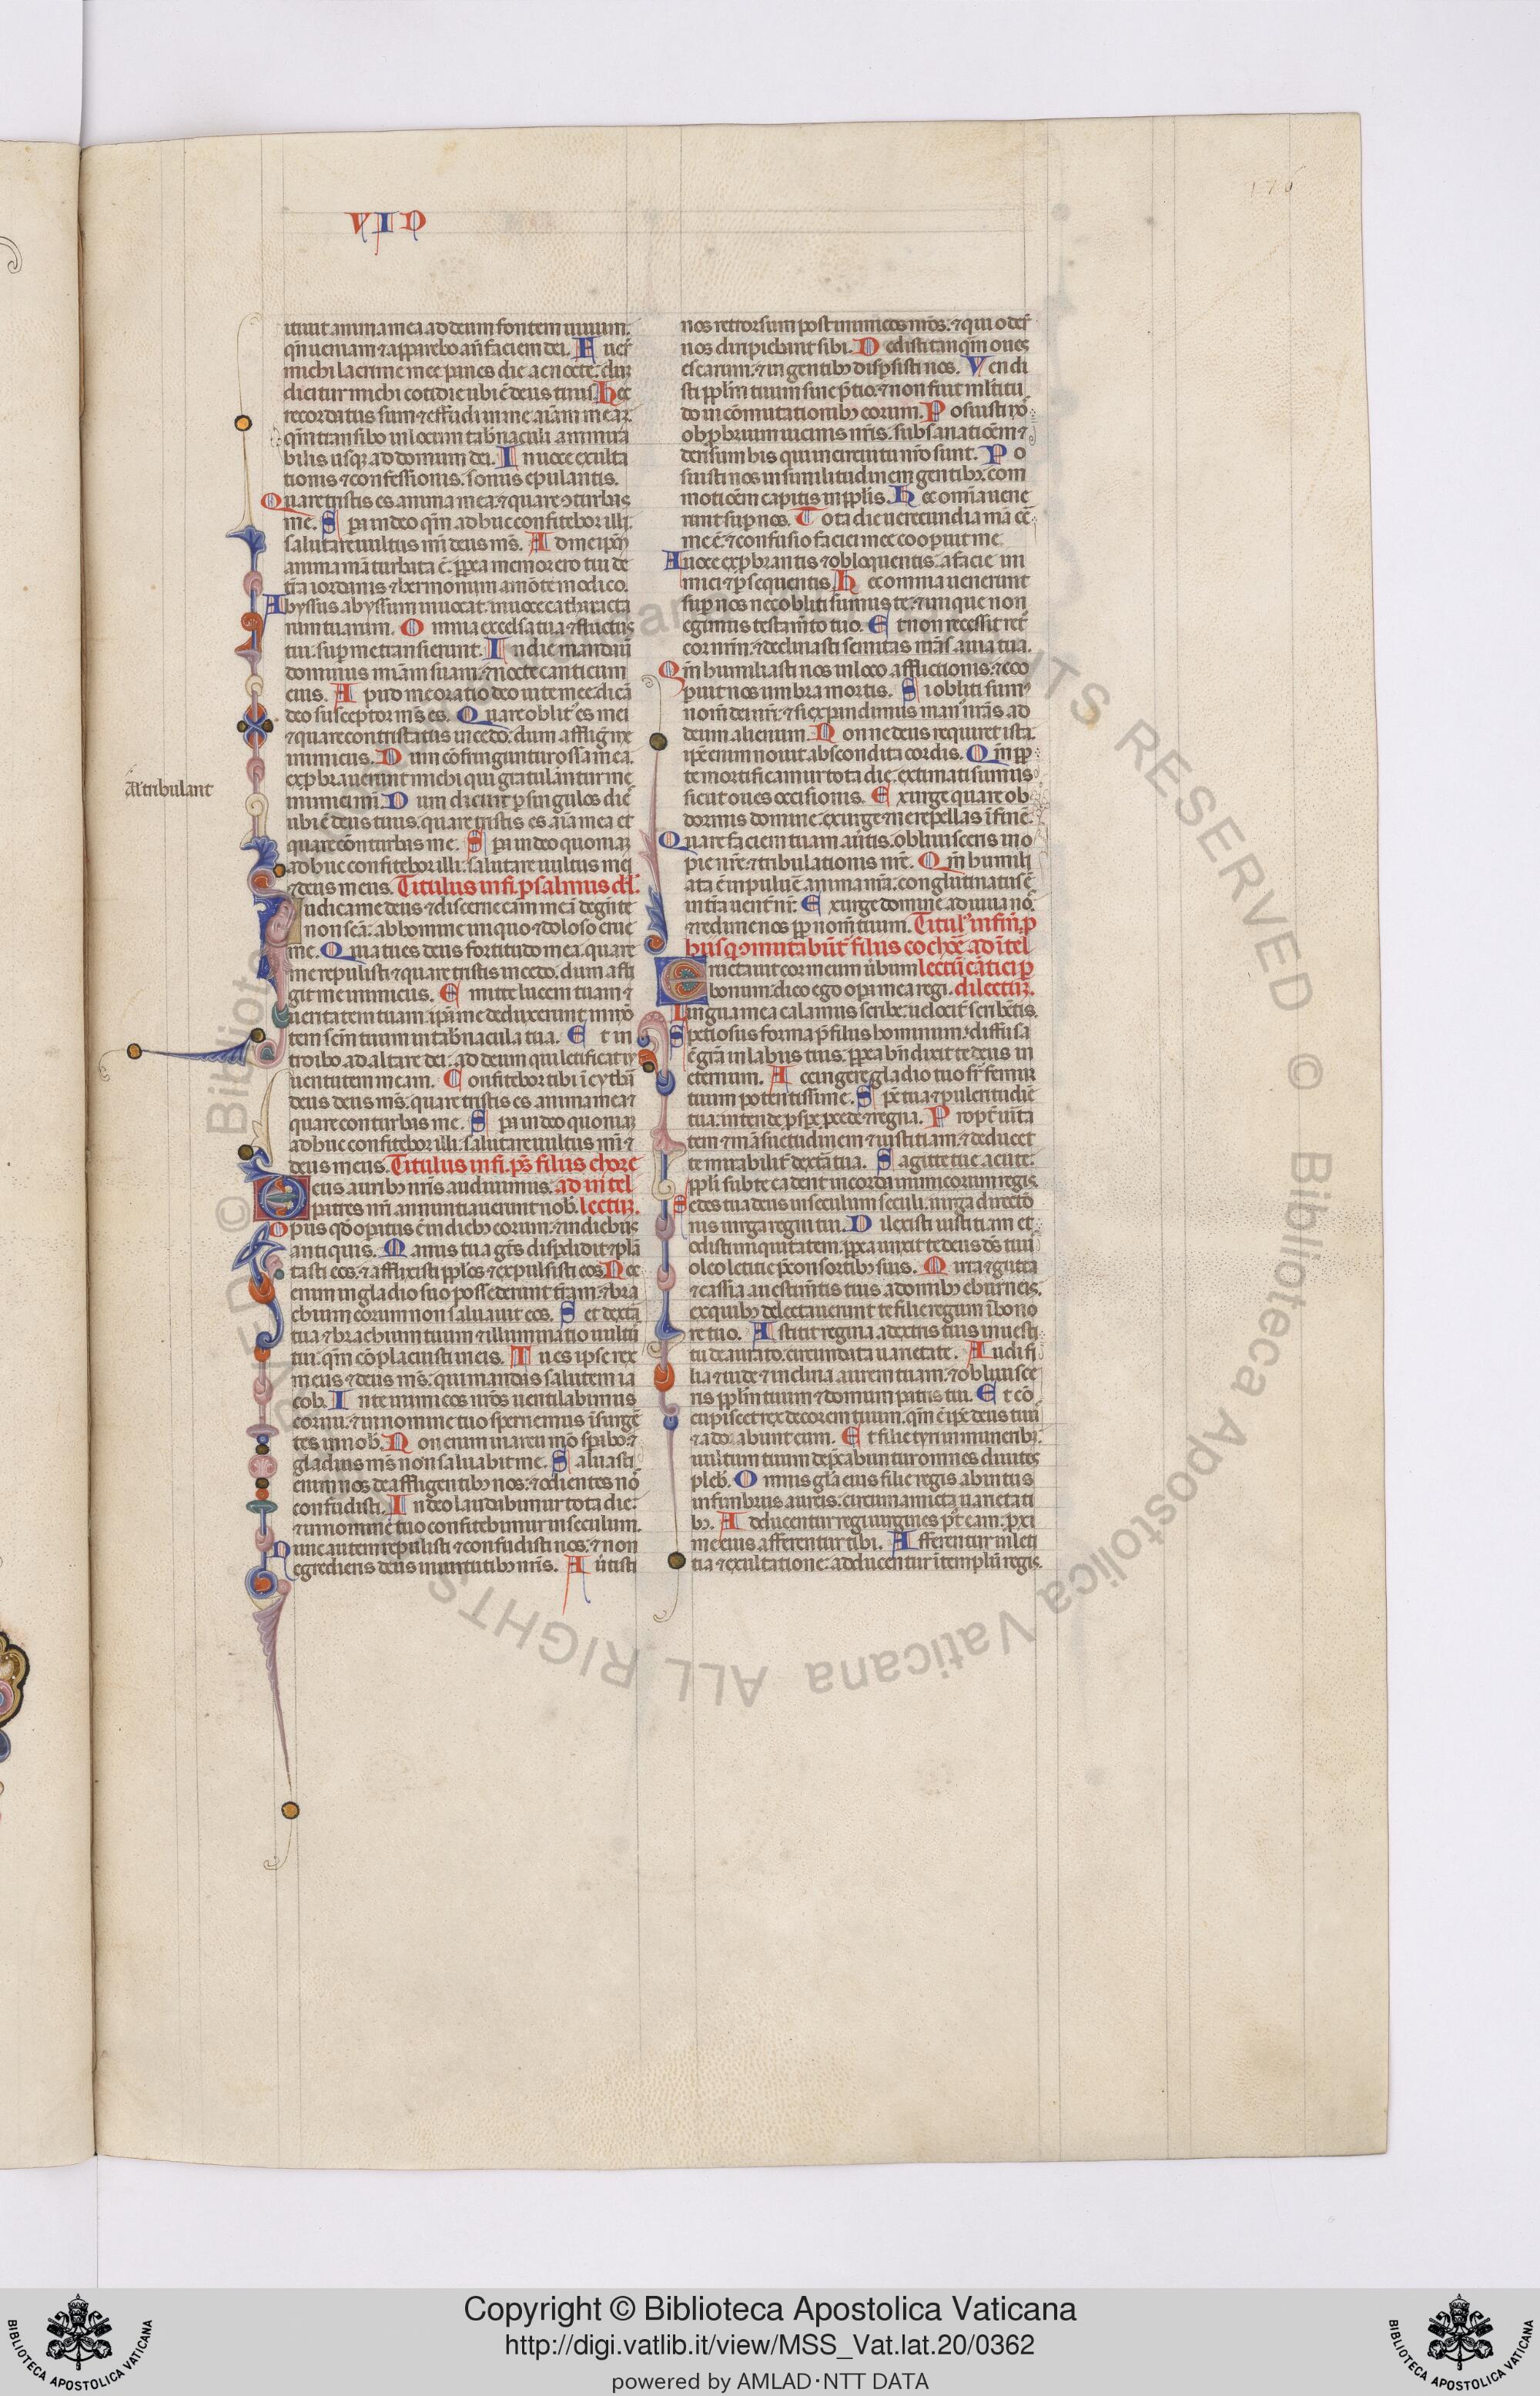 VID
176
tiuit anima mea ad deum fontem uiuum.
qñ ueniam ⁊ apparebo añ faciem dei. F uer̃
michi lacrime mee panes die ac nocte. dum
dicitur michi cotidie ubi ẽ deus tuus. Hec
recordatus sum ⁊ effudi in me aĩam meaꝫ
qm̃ transibo in locum tab̃naculi ammira
bilis usqꝫ ad domum dei. I n uoce exulta
tionis ⁊ confessionis. sonus epulantis.
Quare tristis es anima mea. ⁊ quare ꝯturbas
me. S pera in deo qm̃ adhuc confitebor illi.
salutare uultus mei deus ms̃. A d me ip̃m
anima mã turbata ẽ. ꝓpterea memor ero tui de
tr̃a iordanis ⁊ hermonium a mõte modico.
Abyssus abyssum inuocat. in uoce catharacta
rum tuarum. O mnia excelsa tua ⁊ fluctus
tui. suꝑ me transierunt. I n die mandauit
dominus mĩam suam. ⁊ nocte canticum
eius. A pud me oratio deo uite mee. dicã
deo susceptor ms̃ es. Q uare oblitꝰ es mei
⁊ quare contristatus incedo. dum affligit me
inimicus. D um cõfringuntur ossa mea.
exꝓbrauerunt michi qui gratulantur me
inimici mei. D um dicunt ꝑ singulos dies
ubi ẽ deus tuus. quare tristis es aĩa mea et
quare cõnturbas me. S pera in deo quoniaꝫ
adhuc confitebor illi. salutare uultus mei
⁊ deus meus. Titulus in fi. psalmus dd̃.
Iudica me deus ⁊ discerne cãm meã de gẽte
non scã. ab homine iniquo ⁊ doloso erue
me. Q uia tu es deus fortitudo mea. quare
me repulisti ⁊ quare tristis incedo. dum affli
git me inimicus. E mitte lucem tuam ⁊
ueritatem tuam. ip̃a me deduxerunt in mõ
tem scm̃ tuum in tab̃nacula tua. E t in
troibo ad altare dei. ad deum qui letificat iu
uentutem meam. C onfitebor tibi ĩ cythara
deus deus ms̃. quare tristis es anima mea ⁊
quare conturbas me. S pera in deo quoniaꝫ
adhuc confitebor illi. salutare uultus mei ⁊
deus meus. Titulus in fi. ps̃ filiis chore
Deus auribꝰ nr̃is audiuimus. ad intel
patres nr̃i annuntiauerunt nob̃. lectuꝫ.
Opus qd̃ operatus ẽ in diebꝰ eorum. ⁊ in diebus
antiquis. M anus tua gẽs disperdidit ⁊ plã
tasti eos. ⁊ afflixisti pplo̾s ⁊ expulsisti eos N ec
enim in gladio suo possederunt tr̃am. ⁊ bra
chium eorum non saluauit eos. S et dextera
tua ⁊ brachium tuum ⁊ illuminatio uultus
tui. qm̃ cõplacuisti in eis. T u es ipse rex
meus ⁊ deus ms̃. qui mandas salutem ia
cob. I n te inimicos nr̃os uentilabimus
cornu. ⁊ in nomine tuo spernemus ĩsurgẽ
tes in nob̃. N on enim in arcu meo sperabo. ⁊
gladius ms̃ non saluabit me. S aluasti
enim nos de affligentibꝰ nos. ⁊ odientes nos
confudisti. I n deo laudabimur tota die.
⁊ in nomine tuo confitebimur in seculum.
Nunc autem repulisti ⁊ confudisti nos. ⁊ non
egredieris deus in uirtutibꝰ nr̃is. A uertisti
Al̃ tribulant
nos retrorsum post inimicos nr̃os. ⁊ qui oder̃
nos diripiebant sibi. D edisti tanqm̃ oues
escarum. ⁊ in gentibꝰ dispersisti nos. V endi
disti pplm̃ tuum sine p̃tio. ⁊ non fuit multitu
do in cõmutationibꝰ eorum. P osuisti nos
obꝓbrium uicinis nr̃is. subsanationem ⁊
derisum his qui in circuitu nr̃o sunt. P o
suisti nos in similitudinem gentibꝰ. com
motionem capitis in pplis̃. H ec omnia uene
runt super nos. T ota die uerecundia mã cõ
me ẽ. ⁊ confusio faciei mee cooperuit me
Auoce exꝓbrantis ⁊ obloquentis. a facie ini
mici ⁊ ꝑsequentis. H ec omnia uenerunt
super nos nec obliti sumus te. ⁊ inique non
egimus testam̃to tuo. E t non recessit retro
cor nr̃m. ⁊ declinasti semitas nr̃as a uia tua.
Qm̃ humiliasti nos in loco afflictionis. ⁊ coo
peruit nos umbra mortis. S i obliti sumꝰ
nom̃ dei nr̃i. ⁊ si expandimus manꝰ nr̃as ad
deum alienum. N onne deus requiret ista.
ip̃e enim nouit abscondita cordis. Q m̃ ꝓp
te mortificamur tota die. extimati sumus
sicut oues occisionis. E xurge quare ob
dormis domine. exurge ⁊ ne repellas ĩ finẽ.
Quare faciem tuam au̾tis. obliuisceris ino
pie nr̃e. ⁊ tribulationis nr̃e. Q m̃ humili
ata ẽ in puluẽ anima nr̃a. conglutinatus ẽ
in tr̃a uenter nr̃. E xurge domine adiuua nos
⁊ redime nos ꝓp nom̃ tuum. Titulꝰ in finẽ. ꝑ
hiis q̃ ꝯmutabũt̃ filiis eo chore. ad ĩtel
Eructauit cor meum u̾bum lectũ cãticũ ꝑ
bonum. dico ego opera mea regi. dilectuꝫ.
Lingua mea calamus scribe. uelociter scribẽtis.
Spetiosus forma p̃ filiis hominum. diffusa
ẽ gr̃a in labiis tuis. ꝓpterea bñdixit te deus in
eternum. A ccingere gladio tuo suꝑ femur
tuum potentissime. S pecie tua ⁊ pulcritudine
tua. intende ꝓspere ꝓcede ⁊ regna. P ropter uerita
tem ⁊ mãsuetudinem ⁊ iustitiam. ⁊ deducet
te mirabiliter dextera tua. S agitte tue acute.
ppli̾ sub te cadent in corda inimicorum regis.
Sedes tua deus in seculum seculi. uirga directio
nis uirga regni tui. D ilexisti iustitiam et
odisti iniquitatem. ꝓpterea unxit te deus ds̃ tuus
oleo letitie p̃ consortibꝰ suis. M irra ⁊ gutta
⁊ cassia a uestim̃tis tuis a domibꝰ eburneis.
ex quibꝰ delectauerunt te filie regum ĩ hono
re tuo. A stitit regina a dextris tuis in uesti
tu deaurato. circundata uarietate. A udi fi
lia ⁊ uide ⁊ inclina aurem tuam. ⁊ obliuisce
ris pplm̃ tuum ⁊ domum patris tui. E t cõ
cupiscet rex decorem tuum. qm̃ ẽ ip̃e deus tuus
⁊ adorabunt eum. E t filie tyri in muneribꝰ.
uultum tuum dep̃cabuntur omnes diuites
pleb̃. O mnis gl̃a eius filie regis ab intus
in fimbriis aureis. circumamicta uarietati
bꝰ. A dducentur regi uirgines pt̾ eam. ꝓxi
me eius afferentur tibi. A fferentur in leti
tia ⁊ exultatione. adducentur ĩ templũ regis.
© Biblioteca Apostolica Vaticana ALL RIGHTS RESERVED
Copyright © Biblioteca Apostolica Vaticana
http://digi.vatlib.it/view/MSS_Vat.lat.20/0362
powered by AMLAD·NTT DATA
BIBLIOTECA APOSTOLICA VATICANA
BIBLIOTECA APOSTOLICA VATICANA